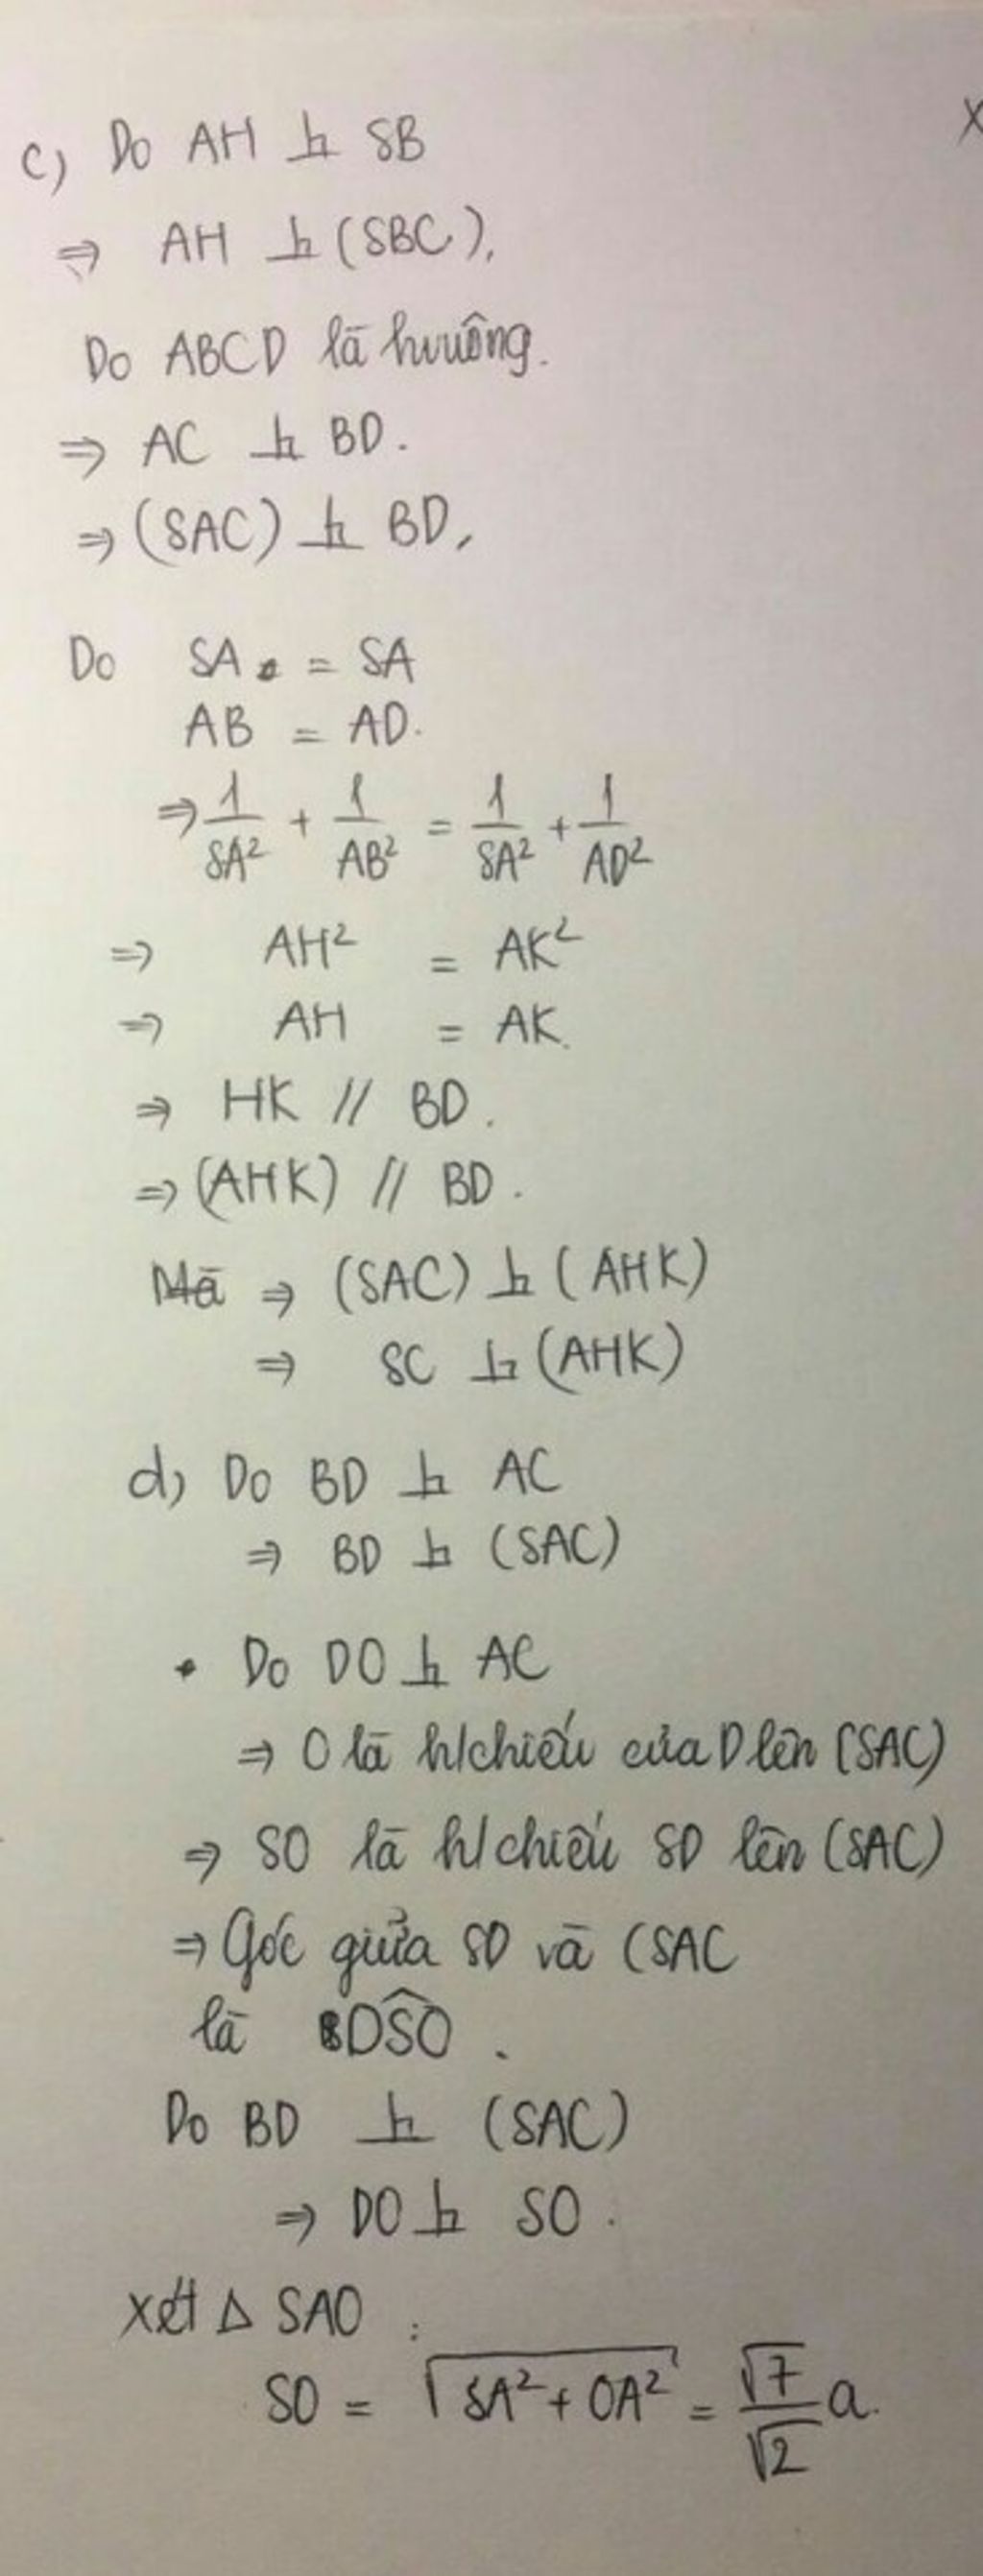 X
c) Do AH ⊥ SB
⇒ AH ⊥ (SBC).
Do ABCD là hvuông.
⇒ AC ⊥ BD.
⇒ (SAC) ⊥ BD,
Do SA = SA
AB = AD.
⇒ 1/SA² + 1/AB² = 1/SA² + 1/AD²
⇒ AH² = AK²
⇒ AH = AK.
⇒ HK // BD.
⇒ (AHK) // BD.
Mà ⇒ (SAC) ⊥ (AHK)
⇒ SC ⊥ (AHK)
d) Do BD ⊥ AC
⇒ BD ⊥ (SAC)
• Do DO ⊥ AC
⇒ O là h/chiếu của D lên (SAC)
⇒ SO là h/chiếu SD lên (SAC)
⇒ Góc giữa SD và (SAC
là DSO^.
Do BD ⊥ (SAC)
⇒ DO ⊥ SO.
Xét Δ SAO :
SO = √(SA² + OA²) = √7/√2 a.